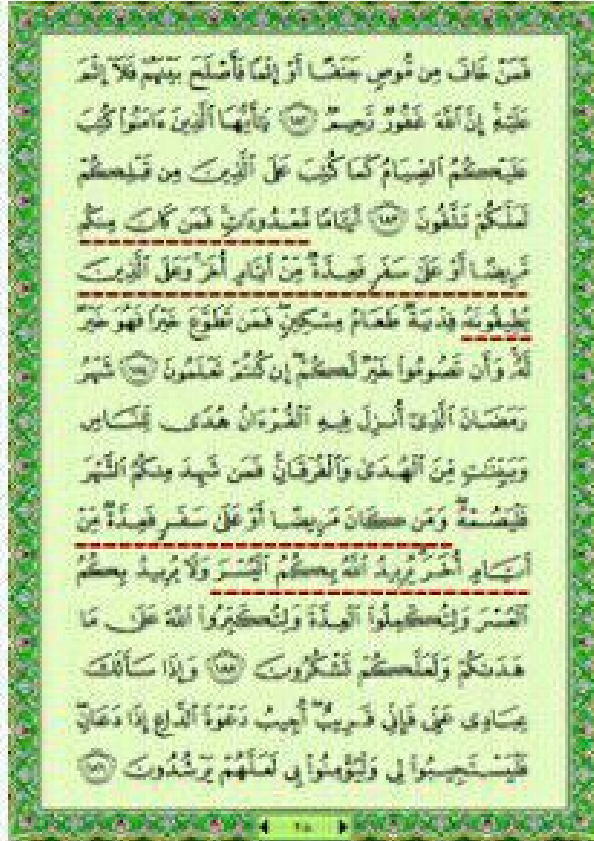 فَمَنْ خَافَ مِن مُّوصٍ جَنَفًا أَوْ إِثْمًا فَأَصْلَحَ بَيْنَهُمْ فَلَآ إِثْمَ
عَلَيْهِ إِنَّ ٱللَّهَ غَفُورٌ رَّحِيمٌ ١٨٢ يَٰٓأَيُّهَا ٱلَّذِينَ ءَامَنُوا۟ كُتِبَ
عَلَيْكُمُ ٱلصِّيَامُ كَمَا كُتِبَ عَلَى ٱلَّذِينَ مِن قَبْلِكُمْ
لَعَلَّكُمْ تَتَّقُونَ ١٨٣ أَيَّامًا مَّعْدُودَٰتٍ فَمَن كَانَ مِنكُم
مَّرِيضًا أَوْ عَلَىٰ سَفَرٍ فَعِدَّةٌ مِّنْ أَيَّامٍ أُخَرَ وَعَلَى ٱلَّذِينَ
يُطِيقُونَهُۥ فِدْيَةٌ طَعَامُ مِسْكِينٍ فَمَن تَطَوَّعَ خَيْرًا فَهُوَ خَيْرٌ
لَّهُۥ وَأَن تَصُومُوا۟ خَيْرٌ لَّكُمْ إِن كُنتُمْ تَعْلَمُونَ ١٨٤ شَهْرُ
رَمَضَانَ ٱلَّذِىٓ أُنزِلَ فِيهِ ٱلْقُرْءَانُ هُدًى لِّلنَّاسِ
وَبَيِّنَٰتٍ مِّنَ ٱلْهُدَىٰ وَٱلْفُرْقَانِ فَمَن شَهِدَ مِنكُمُ ٱلشَّهْرَ
فَلْيَصُمْهُ وَمَن كَانَ مَرِيضًا أَوْ عَلَىٰ سَفَرٍ فَعِدَّةٌ مِّنْ
أَيَّامٍ أُخَرَ يُرِيدُ ٱللَّهُ بِكُمُ ٱلْيُسْرَ وَلَا يُرِيدُ بِكُمُ
ٱلْعُسْرَ وَلِتُكْمِلُوا۟ ٱلْعِدَّةَ وَلِتُكَبِّرُوا۟ ٱللَّهَ عَلَىٰ مَا
هَدَىٰكُمْ وَلَعَلَّكُمْ تَشْكُرُونَ ١٨٥ وَإِذَا سَأَلَكَ
عِبَادِى عَنِّى فَإِنِّى قَرِيبٌ أُجِيبُ دَعْوَةَ ٱلدَّاعِ إِذَا دَعَانِ
فَلْيَسْتَجِيبُوا۟ لِى وَلْيُؤْمِنُوا۟ بِى لَعَلَّهُمْ يَرْشُدُونَ ١٨٦
٢٨